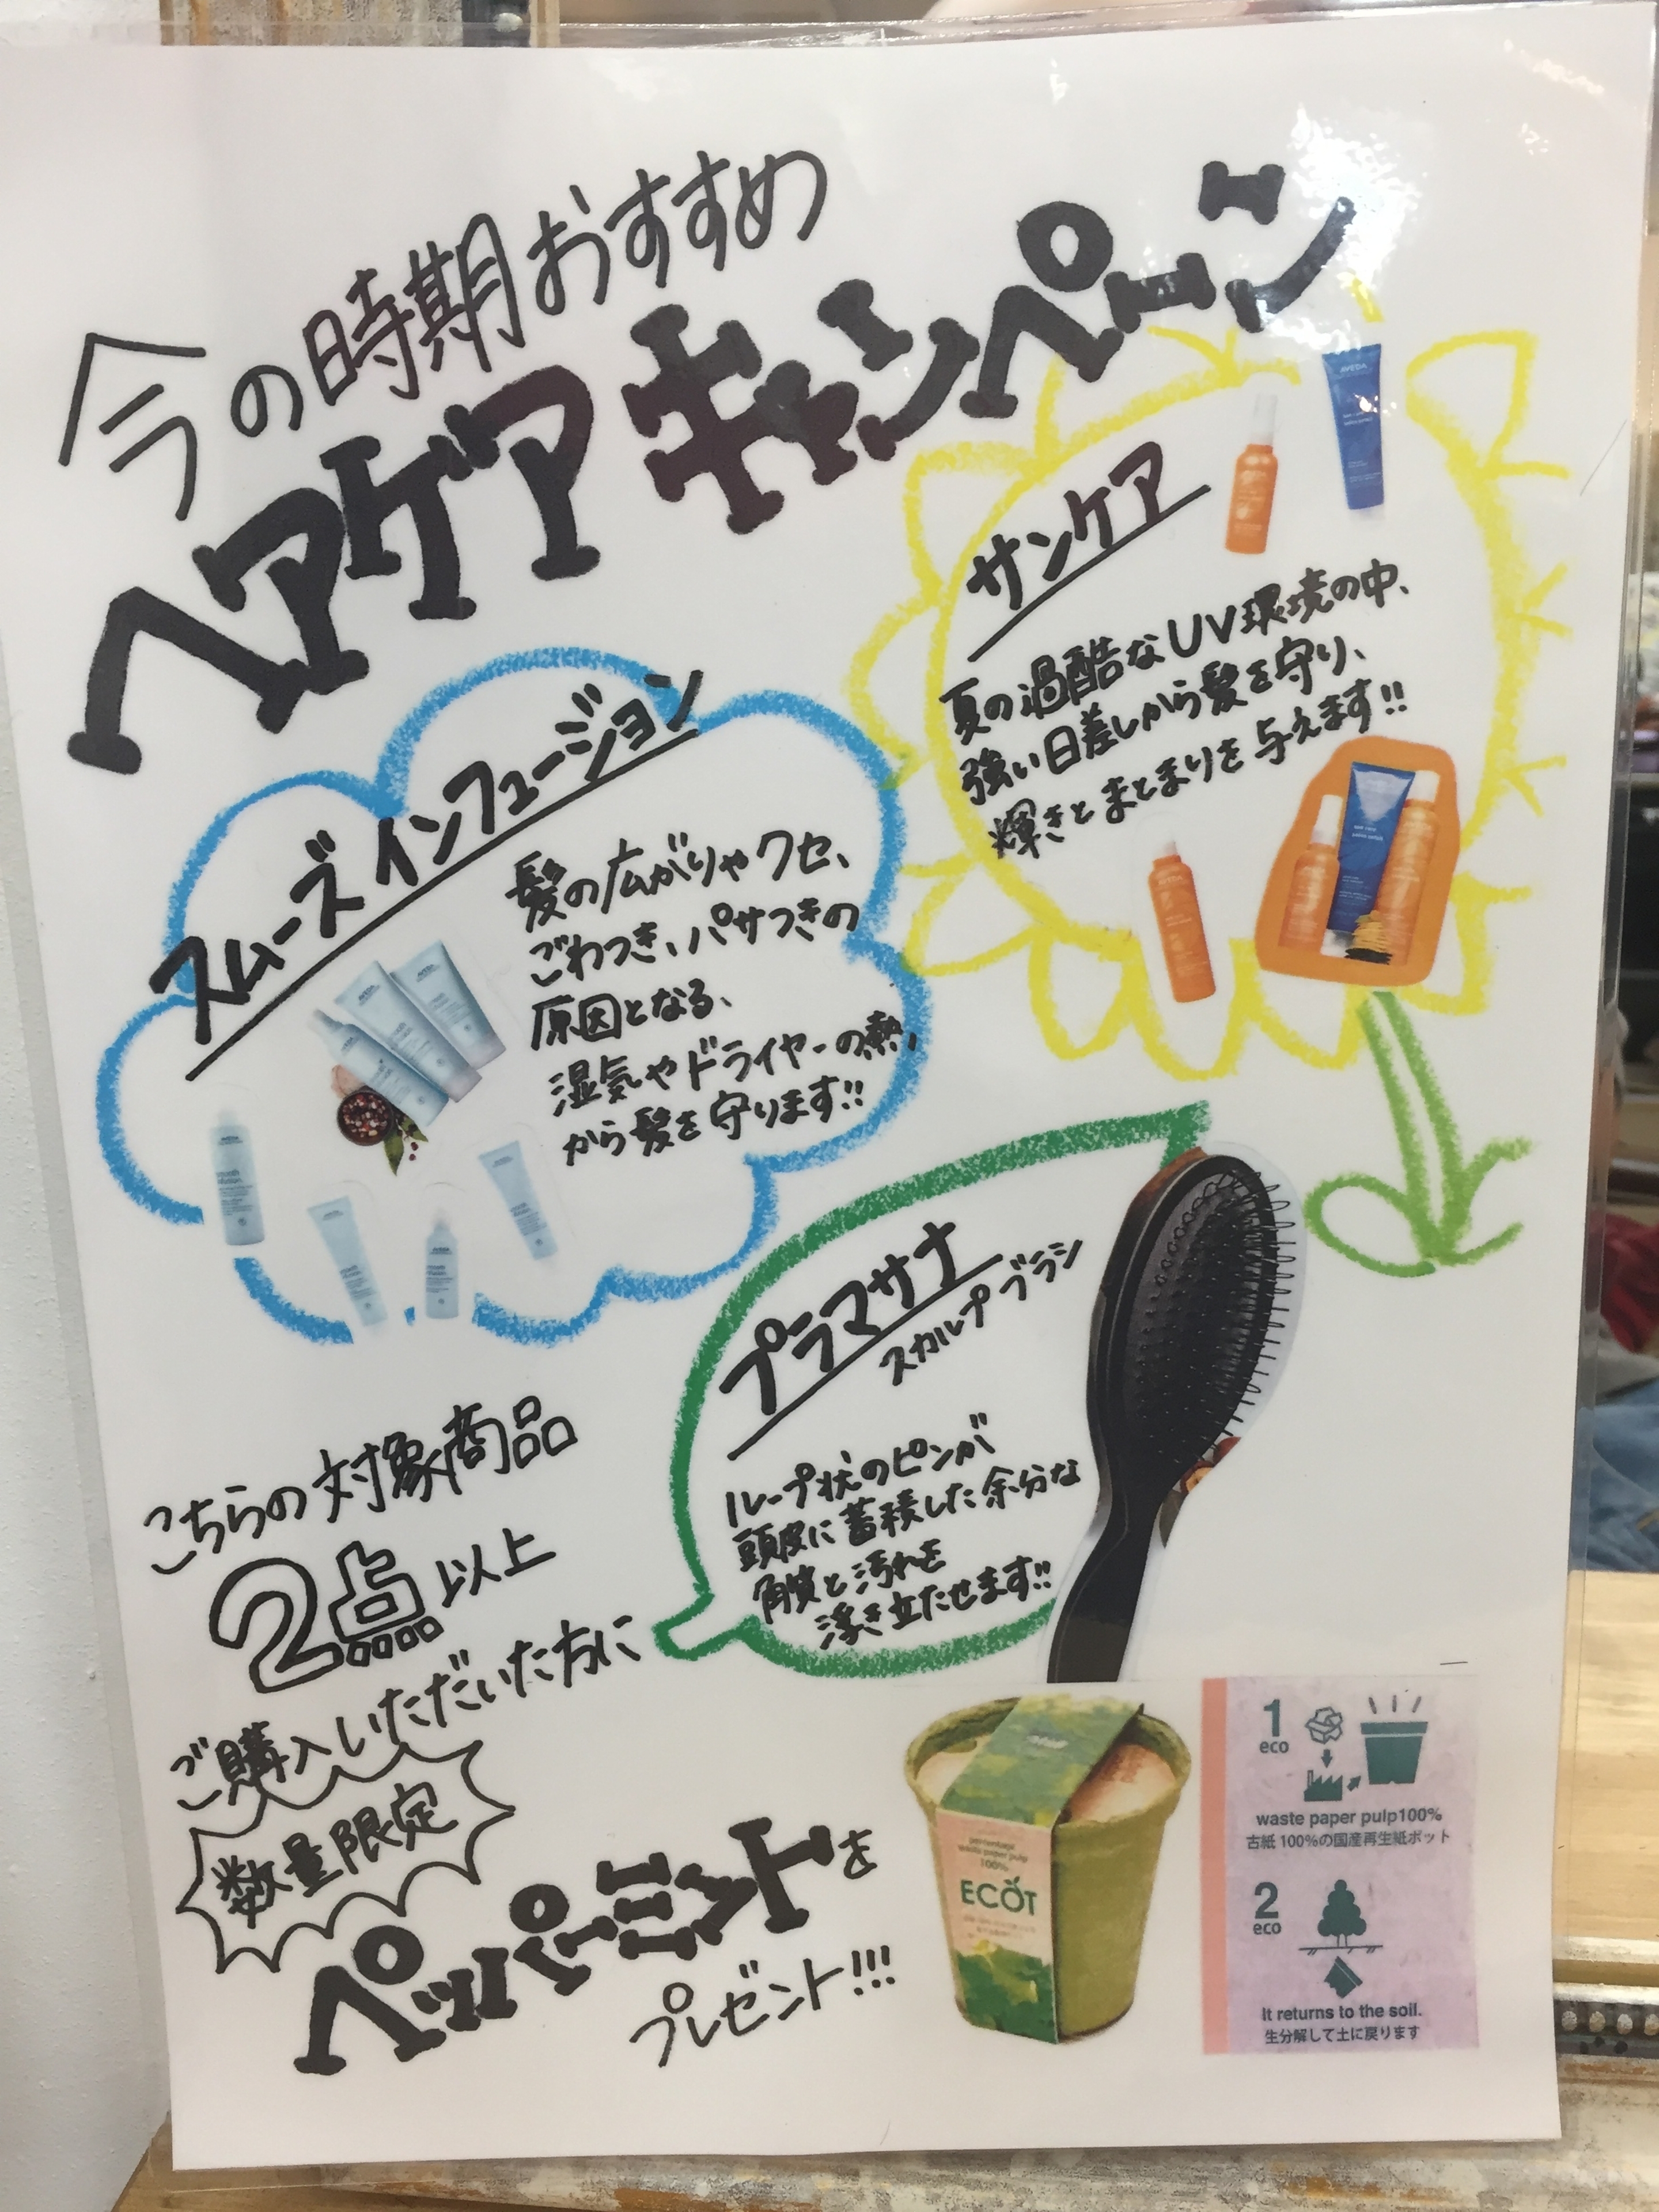 今の時期おすすめ
ヘアケアキャンペーン
サンケア
夏の過酷なUV環境の中、
強い日差しから髪を守り、
輝きとまとまりを与えます!!
AVEDA
スムーズインフュージョン
髪の広がりやクセ、
ごわつき、パサつきの
原因となる、
湿気やドライヤーの熱、
から髪を守ります!!
プラマサナ
スカルプブラシ
ループ状のピンが
頭皮に蓄積した余分な
角質と汚れを
浮き立たせます!!
こちらの対象商品
2点以上
ご購入いただいた方に
数量限定
ペッパーミントを
プレゼント!!!
waste paper pulp
100%
ECOT
1
eco
waste paper pulp100%
古紙100%の国産再生紙ポット
2
eco
It returns to the soil.
生分解して土に戻ります